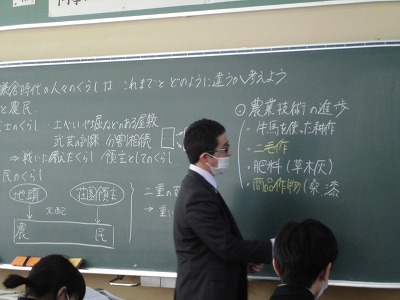 鎌倉時代の人々のくらしは これまでと どのように違うか考えよう
と農民
士のくらし 土べいや堀などのある屋敷
武芸の訓練 分割相続
⇒ 戦いに備えてくらし 領主としてのくらし
民のくらし
地頭 荘園領主
二重の支
支配
⇒ 重い
農 民
◎ 農業技術の進歩
・牛馬を使った耕作
・二毛作
・肥料(草木灰)
・商品作物(桑、漆